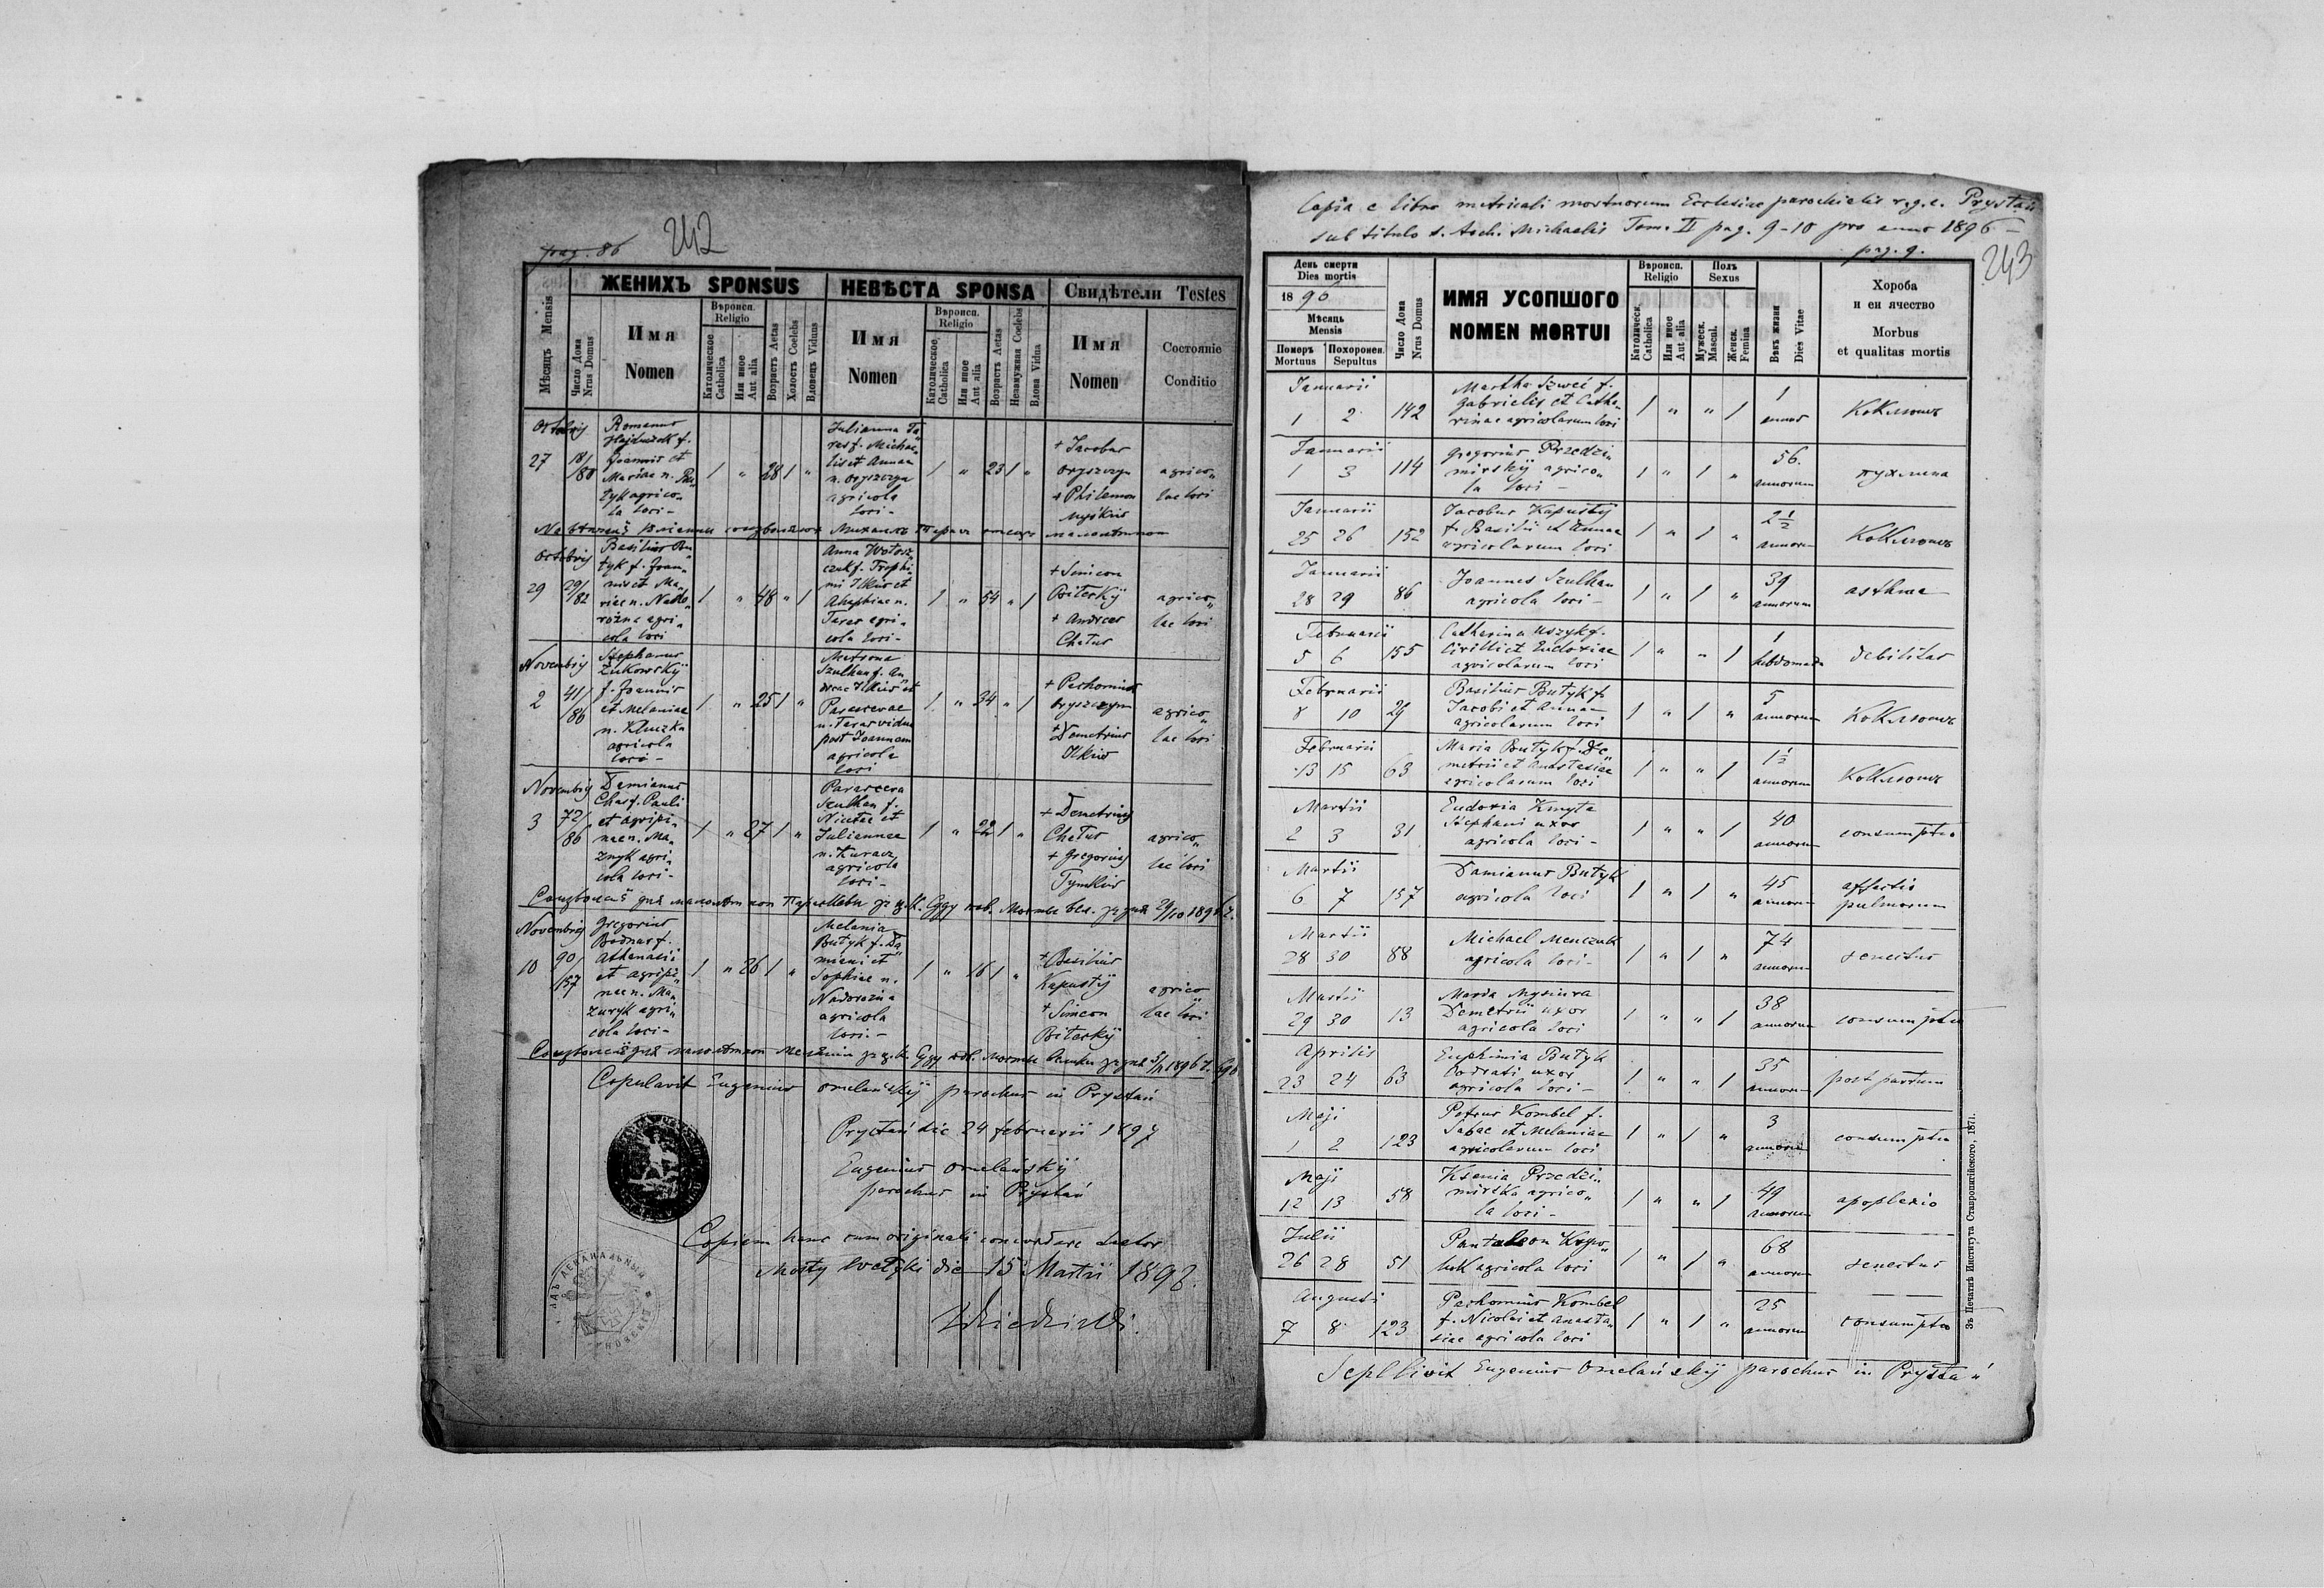 pag. 86
242
ЖЕНИХЪ SPONSUS
НЕВѢСТА SPONSA
Свидѣтели Testes
Мѣсяцъ Mensis
Число Дома
Nrus Domus
Имя
Nomen
Вѣроисп.
Religio
Католическое
Catholica
Или иное
Aut alia
Возрастъ Aetas
Холостъ Coelebs
Вдовецъ Viduus
Имя
Nomen
Вѣроисп.
Religio
Католическое
Catholica
Или иное
Aut alia
Возрастъ Aetas
Незамужная Coelebs
Вдова Vidua
Имя
Nomen
Состояніе
Conditio
Octobris
27
181/
/88
Romanus
Hajduczok f.
Joannis et
Mariae n. Bu„
tyk agrico„
la loci –
1 „ 28 1 „
Julianna Ta„
ras f. Michae„
lis et Annae
n. Oryszczyn
agricola
loci –
1 „ 23 1 „
+ Jacobus
Oryszczyn
+ Philemon
agrico„
lae loci
Octobris
29
29/
/82
Basilius Bu„
tyk f. Joan„
nis et Ma„
riae n. Nado„
rożna agri„
cola loci
1 „ 48 „ 1
Anna Wołosz„
czuk f. Trophi„
mi Ilkiw et
Ahaphiae n.
Taras agri„
cola loci –
1 „ 54 „ 1
+ Simeon
Biłeckij
+ Andreas
Chatus
agrico„
lae loci
Novembris
2
41/
/86
Stephanus
Żukowskij
f. Joannis
et Melaniae
n. Kluczka
agricola
loci –
1 „ 25 1 „
Matrona
Szulhan f. An„
dreae Ilkiw et
Parascevae
n. Taras vidua
post Joannem
agricola
loci
1 „ 34 „ 1
+ Pachomius
Oryszczyn
+ Demetrius
Ilkiw
agrico„
lae loci
Novembris
3
72/
/86
Demianus
Chas f. Pauli
et Agripi„
nae n. Ma„
zuryk agri„
cola loci –
1 „ 27 1 „
Parasceva
Szulhan f.
Nicetae et
Juliannae
n. Kuracz
agricola
loci –
1 „ 22 1 „
+ Demetrius
Chatus
+ Gregorius
Tymkiw
agrico„
lae loci
Novembris
10
90/
/157
Gregorius
Bodnar f.
Athanasii
et Agripi„
nae n. Ma„
zuryk agri„
cola loci –
1 „ 26 1 „
Melania
Butyk f. Da„
miani et
Sophiae n.
Nadorożna
agricola
loci –
1 „ 16 1 „
+ Basilius
Kapustij
+ Simeon
Biłeckij
agrico„
lae loci
Copulavit Eugenius Omelańskij parochus in Prystań
Prystań die 24 februarii 1897
Eugenius Omelańskij
parochus in Prystań
Copiam hanc cum originali concordare testor
Mosty Wełyki die 15 Martii 1897.
Copia e libro metricali mortuorum Ecclesiae parochialis r. g. c. Prystań
sub titulo s. Arch. Michaelis Tom. II pag. 9–10 pro anno 1896 –
pag. 9.
243
День смерти
Dies mortis
18 96
Мѣсяць
Mensis
Померъ
Mortuus
Похоронен.
Sepultus
Число Дома
Nrus Domus
ИМЯ УСОПШОГО
NOMEN MORTUI
Вѣроисп.
Religio
Католическ.
Catholica
Или иное
Aut alia
Полъ
Sexus
Мужеск.
Mascul.
Женск.
Femina
Вѣкъ жизни
Dies Vitae
Хороба
и еи ячество
Morbus
et qualitas mortis
Januarii
1 2 142
Martha Szweć f.
Gabrielis et Catha„
rinae agricolarum loci
1 „ „ 1
1
annus
Коклюшъ
Januarii
1 3 114
Gregorius Przedzi„
mirskij agrico„
la loci –
1 „ 1 „
56.
annorum
пухлина
Januarii
25 26 152
Jacobus Kapustij
f. Basilii et Annae
agricolarum loci
1 „ 1 „
2½
annorum
Коклюшъ
Januarii
28 29 86
Joannes Szulhan
agricola loci –
1 „ 1 „
39
annorum
asthma
Februarii
5 6 155
Catharina Uszyk f.
Cirilli et Eudoxiae
agricolarum loci
1 „ „ 1
1
hebdomada
debilitas
Februarii
8 10 29
Basilius Butyk f.
Jacobi et Annae
agricolarum loci
1 „ 1 „
5
annorum
Коклюшъ
Februarii
13 15 63
Maria Butyk f. De„
metrii et Anastasiae
agricolarum loci
1 „ „ 1
1½
annorum
Коклюшъ
Martii
2 3 31
Eudoxia Kmyta
Stephani uxor
agricola loci –
1 „ „ 1
40
annorum
consumptio
Martii
6 7 157
Damianus Butyk
agricola loci
1 „ 1 „
45
annorum
affectio
pulmonum
Martii
28 30 88
Michael Menczuk
agricola loci –
1 „ 1 „
74
annorum
senectus
Martii
29 30 13
Maria Mysiura
Demetrii uxor
agricola loci
1 „ „ 1
38
annorum
consumptio
Aprilis
23 24 63
Euphimia Butyk
Codrati uxor
agricola loci –
1 „ „ 1
35
annorum
post partum
Maji
1 2 123
Petrus Kombel f.
Sabae et Melaniae
agricolarum loci
1 „ 1 „
3
annorum
consumptio
Maji
12 13 58
Ksenia Przedzi„
mirska agrico„
la loci –
1 „ „ 1
49
annorum
apoplexio
Julii
26 28 51
Pantaleon Kupo„
wok agricola loci
1 „ 1 „
68
annorum
senectus
Augusti
7 8 123
Pachomius Kombel
f. Nicolai et Anasta„
siae agricola loci
1 „ 1 „
25
annorum
consumptio
Sepllivit Eugenius Omelańskij parochus in Prystań
Зъ Печатнѣ Института Ставропигійского, 1871.